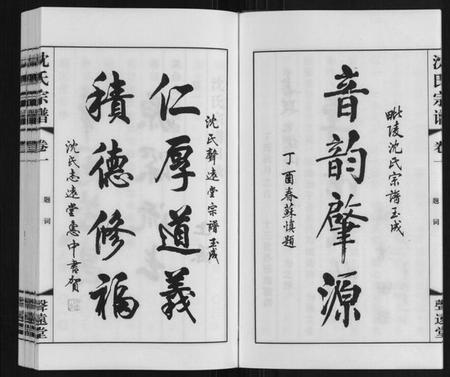 沈氏宗谱
卷一
题词
聲遠堂
毗陵沈氏宗谱玉成
音韵肇源
丁酉春蘇慎题
沈氏聲遠堂宗谱玉成
仁厚道義
積德修福
沈氏志遠堂惠中書贺
沈氏宗谱
卷一
题词
聲遠堂